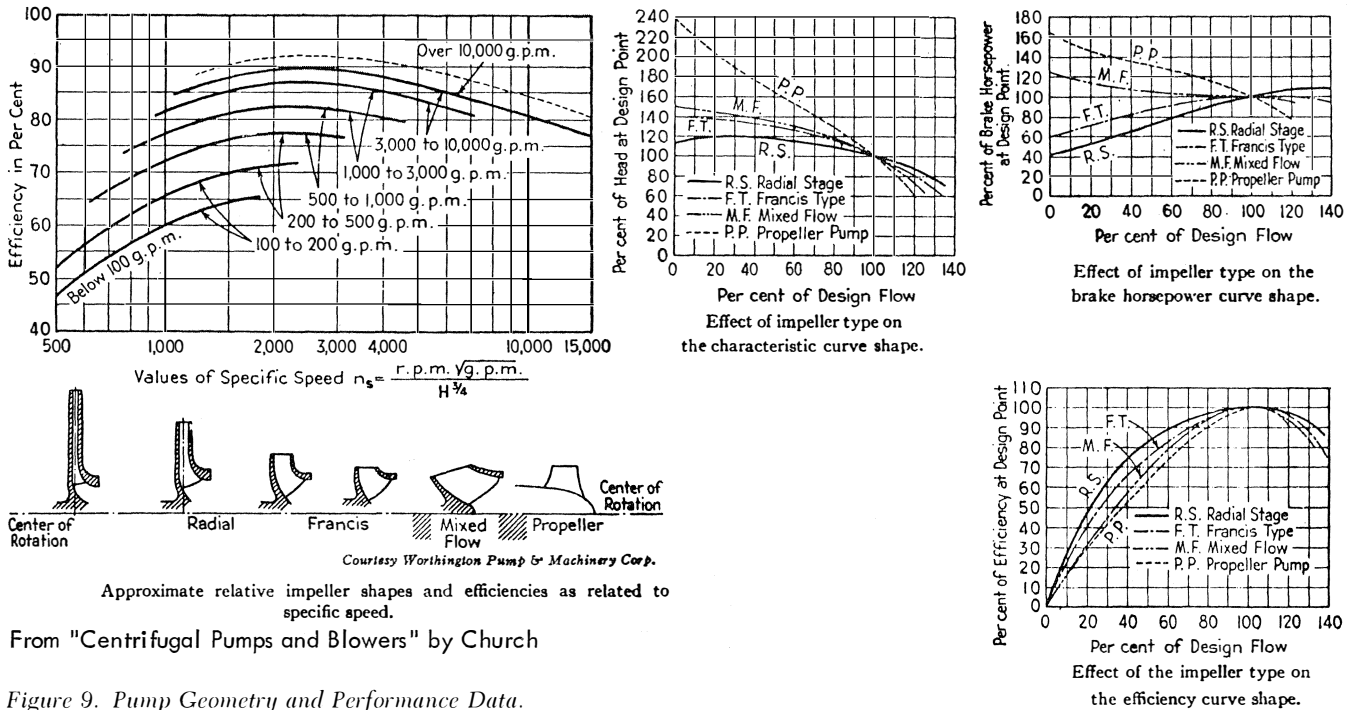 Efficiency in Per Cent
100
90
80
70
60
50
40
Over 10,000 g.p.m.
3,000 to 10,000 g.p.m.
1,000 to 3,000 g.p.m.
500 to 1,000 g.p.m.
200 to 500 g.p.m.
100 to 200 g.p.m.
Below 100 g.p.m.
500 1,000 2,000 3,000 4,000 10,000 15,000
Values of Specific Speed nₛ= r.p.m. √g.p.m. / H¾
Center of Rotation
Radial
Francis
Mixed Flow
Propeller
Center of Rotation
Courtesy Worthington Pump & Machinery Corp.
Approximate relative impeller shapes and efficiencies as related to
specific speed.
From "Centrifugal Pumps and Blowers" by Church
Figure 9. Pump Geometry and Performance Data.
Per cent of Head at Design Point
240
220
200
180
160
140
120
100
80
60
40
20
0
P.P.
M.F.
F.T.
R.S.
R.S. Radial Stage
F.T. Francis Type
M.F. Mixed Flow
P.P. Propeller Pump
0 20 40 60 80 100 120 140
Per cent of Design Flow
Effect of impeller type on
the characteristic curve shape.
Percent of Brake Horsepower
at Design Point
180
160
140
120
100
80
60
40
20
0
P.P.
M.F.
F.T.
R.S.
R.S. Radial Stage
F.T. Francis Type
M.F. Mixed Flow
P.P. Propeller Pump
0 20 40 60 80 100 120 140
Per cent of Design Flow
Effect of impeller type on the
brake horsepower curve shape.
Per cent of Efficiency at Design Point
110
100
90
80
70
60
50
40
30
20
10
0
F.T.
M.F.
R.S.
P.P.
R.S. Radial Stage
F.T. Francis Type
M.F. Mixed Flow
P.P. Propeller Pump
0 20 40 60 80 100 120 140
Per cent of Design Flow
Effect of the impeller type on
the efficiency curve shape.